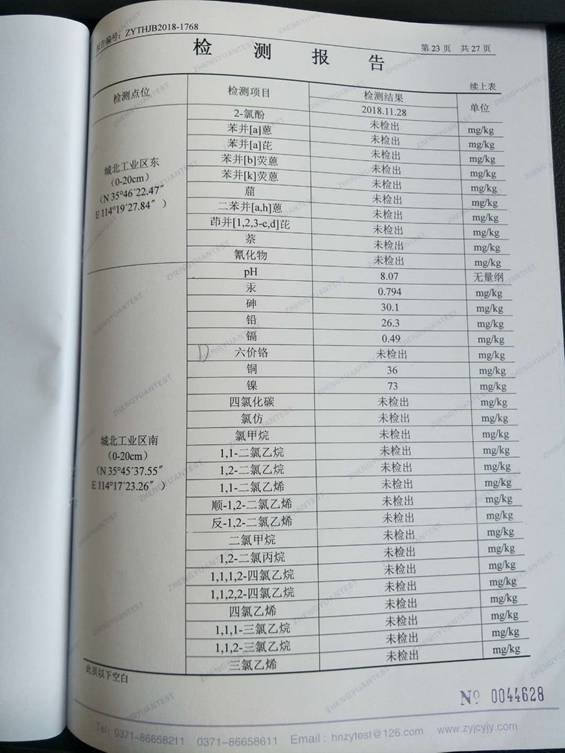 报告编号：ZYTHJB2018-1768
检 测 报 告
第 23 页 共 27 页
续上表
检测点位 检测项目 检测结果 单位
2018.11.28
城北工业区东
（0-20cm）
（N 35°46′22.47″
E 114°19′27.84″）
2-氯酚 未检出 mg/kg
苯并[a]蒽 未检出 mg/kg
苯并[a]芘 未检出 mg/kg
苯并[b]荧蒽 未检出 mg/kg
苯并[k]荧蒽 未检出 mg/kg
䓛 未检出 mg/kg
二苯并[a,h]蒽 未检出 mg/kg
茚并[1,2,3-c,d]芘 未检出 mg/kg
萘 未检出 mg/kg
氰化物 未检出 mg/kg
城北工业区南
（0-20cm）
（N 35°45′37.55″
E 114°17′23.26″）
pH 8.07 无量纲
汞 0.794 mg/kg
砷 30.1 mg/kg
铅 26.3 mg/kg
镉 0.49 mg/kg
六价铬 未检出 mg/kg
铜 36 mg/kg
镍 73 mg/kg
四氯化碳 未检出 mg/kg
氯仿 未检出 mg/kg
氯甲烷 未检出 mg/kg
1,1-二氯乙烷 未检出 mg/kg
1,2-二氯乙烷 未检出 mg/kg
1,1-二氯乙烯 未检出 mg/kg
顺-1,2-二氯乙烯 未检出 mg/kg
反-1,2-二氯乙烯 未检出 mg/kg
二氯甲烷 未检出 mg/kg
1,2-二氯丙烷 未检出 mg/kg
1,1,1,2-四氯乙烷 未检出 mg/kg
1,1,2,2-四氯乙烷 未检出 mg/kg
四氯乙烯 未检出 mg/kg
1,1,1-三氯乙烷 未检出 mg/kg
1,1,2-三氯乙烷 未检出 mg/kg
三氯乙烯 未检出 mg/kg
此页以下空白
№ 0044628
Tel: 0371-86658211 0371-86658611 Email: hnzytest@126.com www.zyjcyjy.com
ZHENGYUANTEST